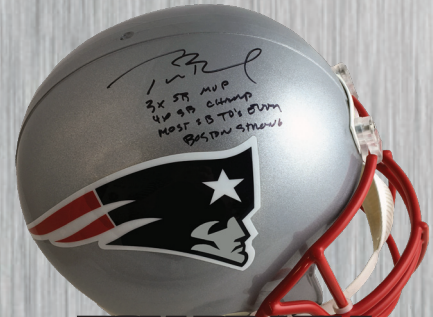 3X SB MVP
4X SB CHAMP
MOST SB TD'S EVER!
BOSTON STRONG